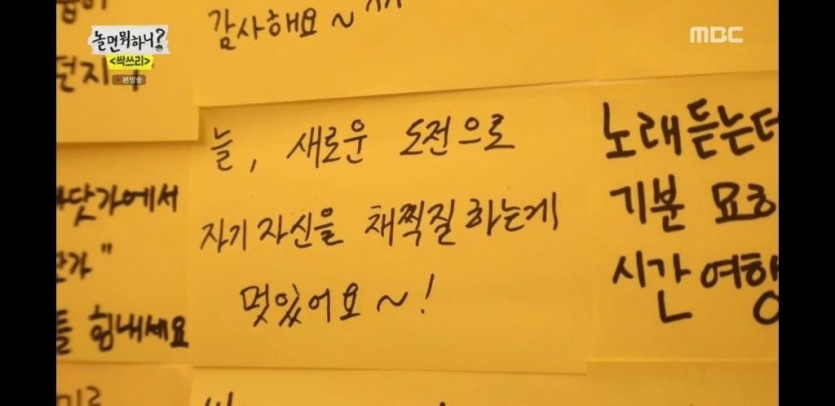 놀면뭐하니?
<싹쓰리>
본방송
MBC
감사해요~^^
늘, 새로운 도전으로
자기 자신을 채찍질 하는게
멋있어요~!
노래듣는
기분
시간여행
닷가에서
힘내세요